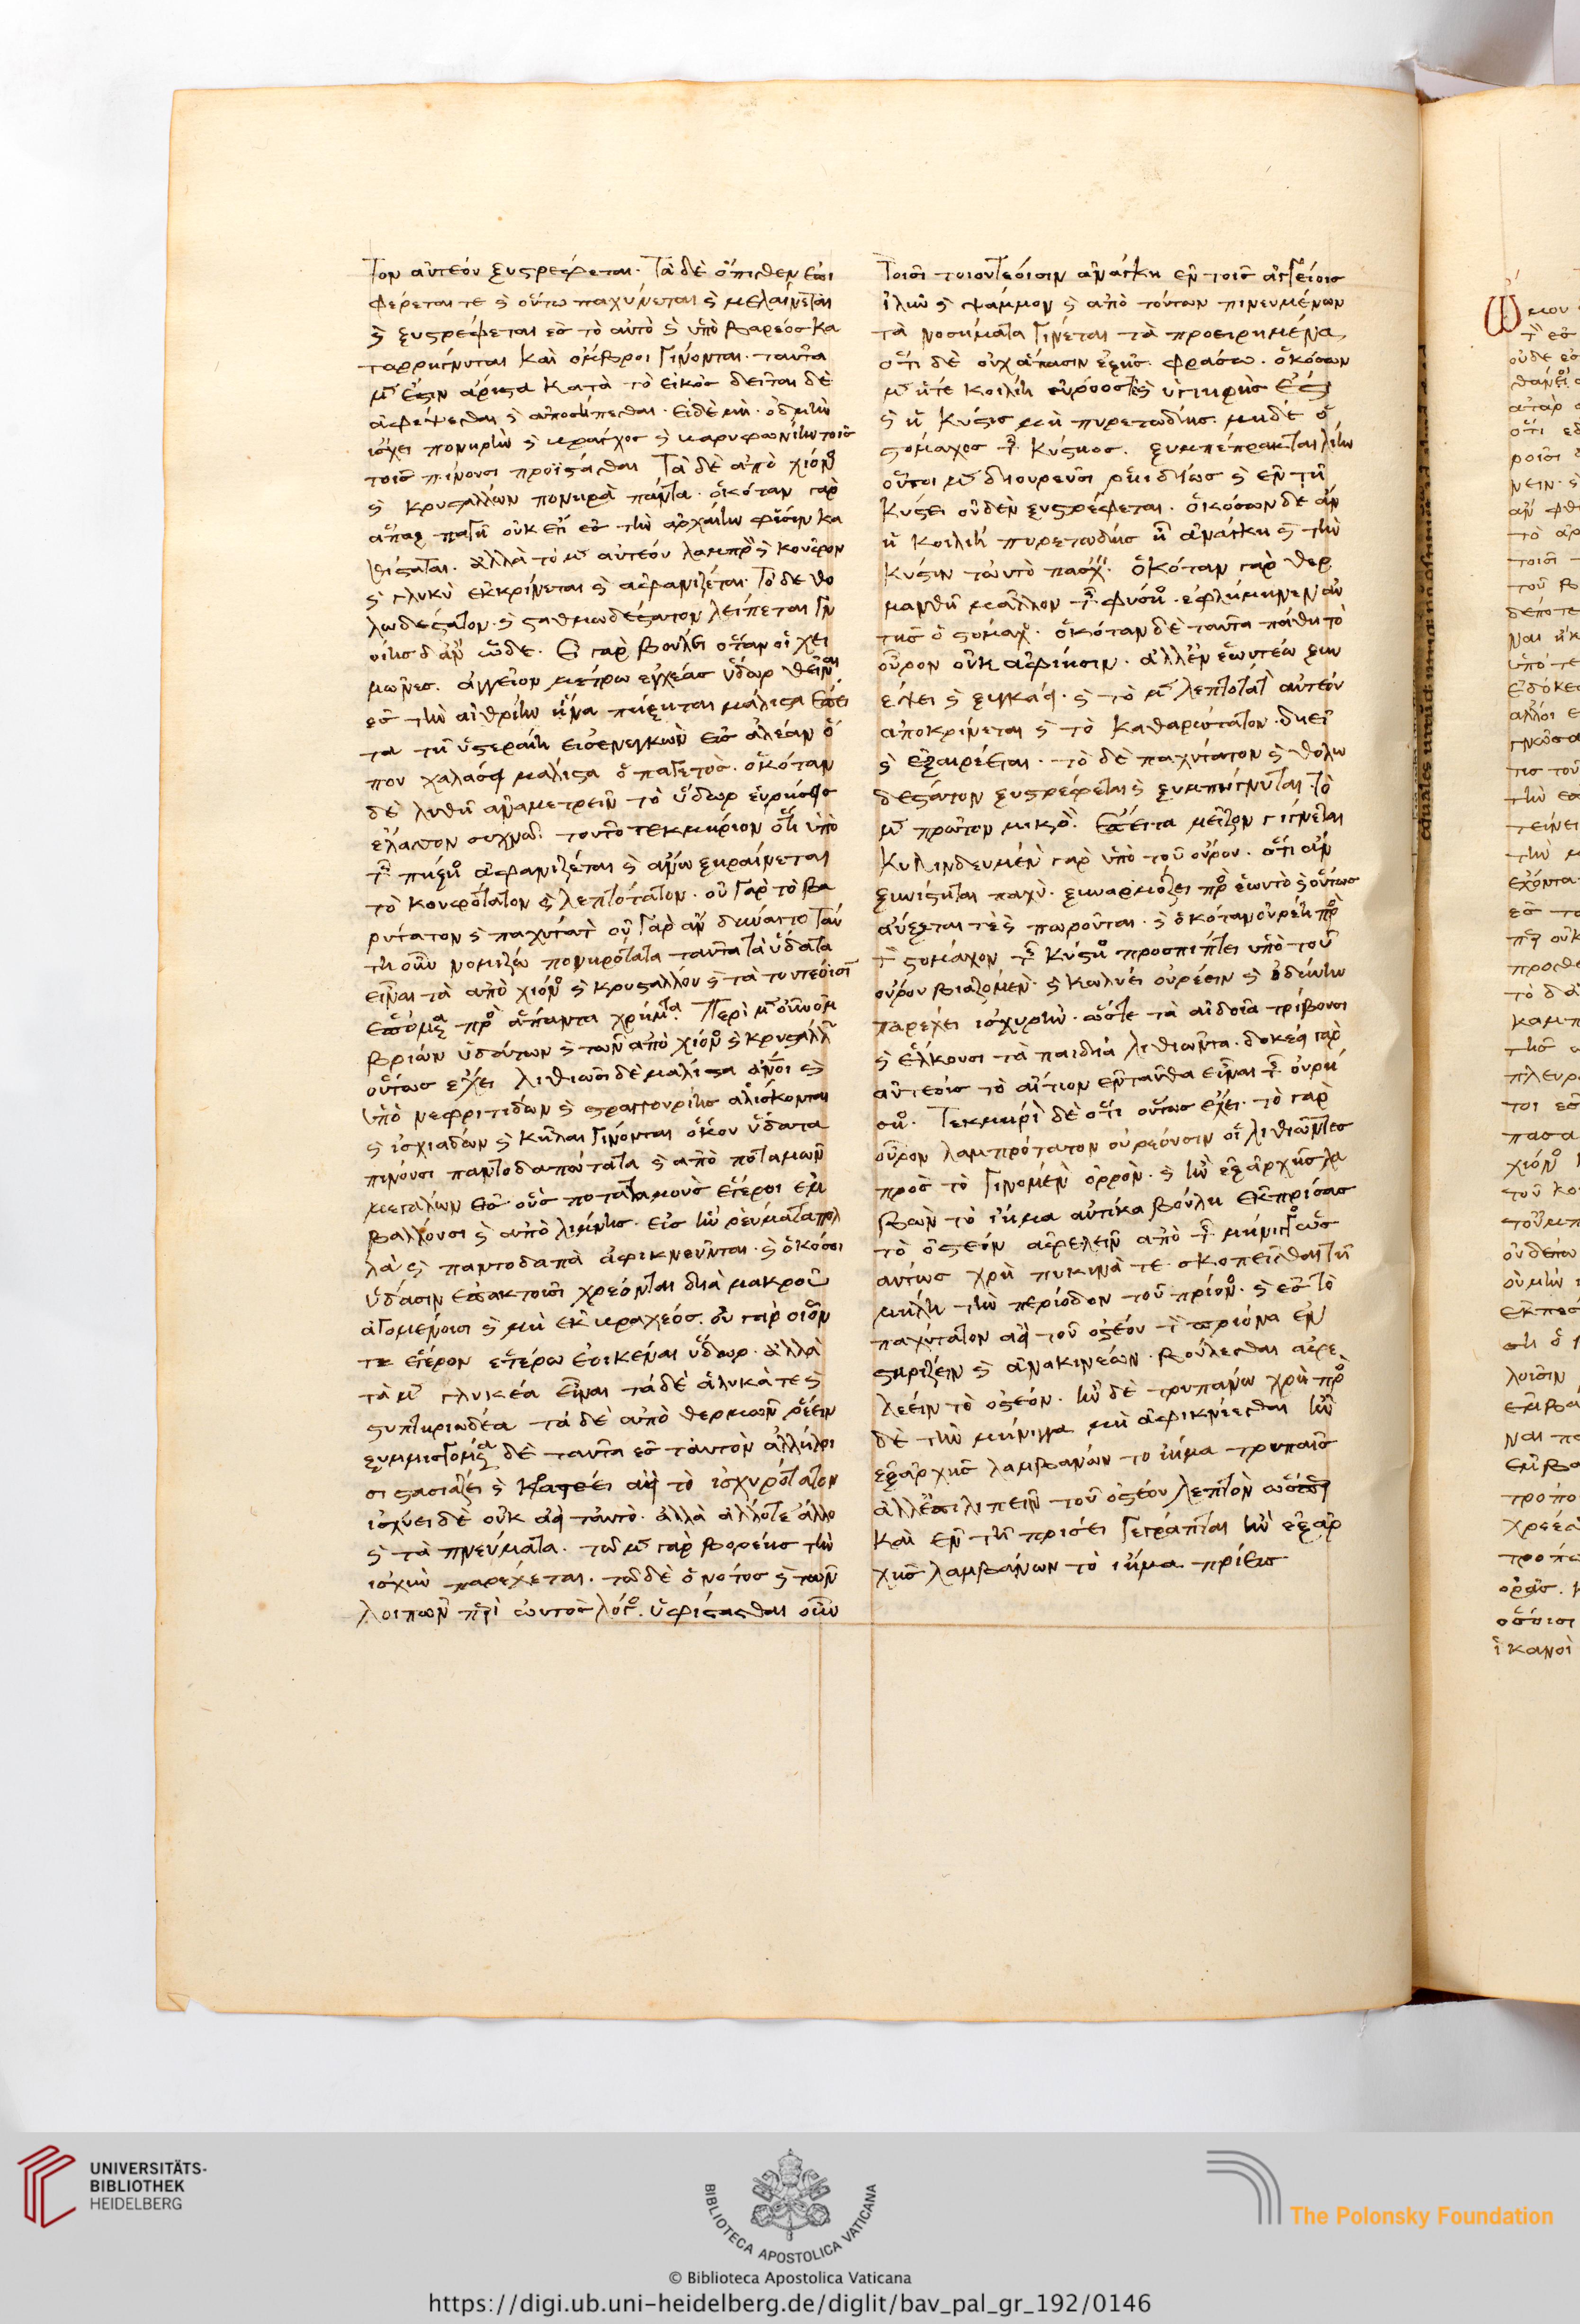 τον αὐτεόν ξυστρέφεται. Τὰ δὲ ὄπισθεν ἐπι
φέρεταί τε καὶ οὕτω παχύνεται καὶ μελαίνεται
καὶ ξυστρέφεται ἐς τὸ αὐτὸ καὶ ὑπὸ βαρέος κα
ταρρήγνυται καὶ ὄμβροι γίνονται. ταῦτα
μὲν ἐστιν ἄριστα κατὰ τὸ εἰκὸς δεῖται δὲ
ἀφέψεσθαι καὶ ἀποσήπεσθαι. εἰ δὲ μὴ. ὀδμὴν
ἰσχει πονηρὴν καὶ βράγχος καὶ βαρυφωνίην τοῖς
τοῖς πίνουσι προΐστασθαι Τὰ δὲ ἀπὸ χιόνος
καὶ κρυστάλλων πονηρὰ πάντα. ὁκόταν γὰρ
ἅπαξ παγῇ οὐκ ἔτι ἐς τὴν ἀρχαίην φύσιν κα
θίσταται. ἀλλὰ τὸ μὲν αὐτεόν λαμπρὸν καὶ κοῦφον
καὶ γλυκὺ ἐκκρίνεται καὶ ἀφανίζεται. Τὸ δὲ θο
λωδέστατον. καὶ σταθμωδέστατον λείπεται γν
οίης δ ἂν ὧδε. Εἰ γὰρ βούλει ὅταν ᾖ χει
μῶνες. ἀγγεῖον μέτρω ἐγχέας ὕδωρ θεῖναι
ἐς τὴν αἰθρίην ἵνα πήξηται μάλιστα ἔπει
τα τῇ ὑστεραίῃ εἰσενεγκὼν ἐς ἀλέαν ὅ
που χαλάσει μάλιστα ὁ παγετὸς. ὁκόταν
δὲ λυθῇ ἀναμετρεῖν τὸ ὕδωρ εὑρήσεις
ἔλασσον συχνῶ. τοῦτο τεκμήριον ὅτι ὑπὸ
τῆς πήξιος ἀφανίζεται καὶ ἀναξηραίνεται
τὸ κουφότατον καὶ λεπτότατον. οὐ γὰρ τὸ βα
ρύτατον καὶ παχύτατον οὐ γὰρ ἂν δύναιτο ταύ
τῃ οὖν νομίζω πονηρότατα ταῦτα τὰ ὕδατα
εἶναι τὰ ἀπὸ χιόνος καὶ κρυστάλλου καὶ τὰ τουτέοισι
ἑπόμενα πρὸς ἅπαντα χρήματα. Περὶ μὲν οὖν ὀμ
βρίων ὑδάτων καὶ τῶν ἀπὸ χιόνος καὶ κρυστάλλων
οὕτως ἔχει λιθιῶσι δὲ μάλιστα ἄνθρωποι καὶ
ὑπὸ νεφριτίδων καὶ στραγγουρίης ἁλίσκονται
καὶ ἰσχιάδων καὶ κῆλαι γίνονται ὅκου ὕδατα
πίνουσι παντοδαπώτατα καὶ ἀπὸ ποταμῶν
μεγάλων ἐς οὓς ποταμοὺς ἕτεροι ἐμ
βάλλουσι καὶ ἀπὸ λίμνης. εἰς ἣν ῥεύματα πολ
λὰ καὶ παντοδαπὰ ἀφικνεῦνται. καὶ ὁκόσοι
ὕδασιν ἐπακτοῖσι χρέονται διὰ μακροῦ
ἀγομένοισι καὶ μὴ ἐκ βραχέος. οὐ γὰρ οἷόν
τε ἕτερον ἑτέρω ἐοικέναι ὕδωρ. ἀλλὰ
τὰ μὲν γλυκέα εἶναι τὰ δὲ ἁλυκά τε καὶ
στυπτηριώδεα τὰ δὲ ἀπὸ θερμῶν ῥέειν
ξυμμισγόμενα δὲ ταῦτα ἐς τὠυτὸν ἀλλήλοι
σι στασιάζει καὶ κρατέει αἰεὶ τὸ ἰσχυρότατον
ἰσχύει δὲ οὐκ αἰεὶ τὠυτὸ. ἀλλὰ ἄλλοτε ἄλλο
καὶ τὰ πνεύματα. τῷ μὲν γὰρ βορέης τὴν
ἰσχὺν παρέχεται. τῷ δὲ ὁ νότος καὶ τῶν
λοιπῶν πέρι ωὐτὸς λόγος. ὑφίστασθαι οὖν
τοῖσι τοιουτέοισιν ἀνάγκη ἐν τοῖς ἀγγείοις
ἰλὺν καὶ ψάμμον καὶ ἀπὸ τούτων πινευμένων
τὰ νοσήματα γίνεται τὰ προειρημένα
ὅτι δὲ οὐχ ἅπασιν ἑξῆς. φράσω. ὁκόσων
μὲν ἥ τε κοιλίη εὔροός τε καὶ ὑγιηρὴς ἐστι
καὶ ἡ κύστις μὴ πυρετώδης. μηδὲ ὁ
στόμαχος τῆς κύστιος. ξυμπέφρακται λίην
οὗτοι μὲν διουρεῦσι ῥηιδίως καὶ ἐν τῇ
κύστει οὐδὲν ξυστρέφεται. ὁκόσων δε ἂν
ἡ κοιλίη πυρετώδης ᾖ ἀνάγκη καὶ τὴν
κύστιν τὠυτὸ πάσχειν. ὁκόταν γὰρ θερ
μανθῇ μᾶλλον τῆς φύσιος. ἐφλέγμηνεν αὐ
τῆς ὁ στόμαχος. ὁκόταν δὲ ταῦτα πάθῃ τὸ
οὖρον οὐκ ἀφίησιν. ἀλλ ἐν ἑωυτέω ξυν
έψει καὶ ξυγκαίει. καὶ τὸ μὲν λεπτότατον αὐτεόν
ἀποκρίνεται καὶ τὸ καθαρώτατον. διιεῖ
καὶ ἐξουρέεται. τὸ δὲ παχύτατον καὶ θολω
δέστατον ξυστρέφεται καὶ ξυμπήγνυται. τὸ
μὲν πρῶτον μικρὸν. ἔπειτα μεῖζον γίγνεται
κυλινδευμένον γὰρ ὑπὸ τοῦ οὔρου. ὅτι ἂν
ξυνίστηται παχὺ. ξυναρμόζει πρὸς ἑωυτὸ καὶ οὕτως
αὔξεταί τε καὶ πωροῦται. καὶ ὁκόταν οὐρέῃ πρὸς
τὸν στόμαχον τῆς κύστιος προσπίπτει ὑπὸ τοῦ
οὔρου βιαζόμενον. καὶ κωλύει οὐρέειν καὶ ὀδύνην
παρέχει ἰσχυρὴν. ὥστε τὰ αἰδοῖα τρίβουσι
καὶ ἕλκουσι τὰ παιδία λιθιῶντα. δοκέει γὰρ
αὐτέοις τὸ αἴτιον ἐνταῦθα εἶναι τῆς οὐρή
σιος. Τεκμήριον δὲ ὅτι οὕτως ἔχει. τὸ γὰρ
οὖρον λαμπρότατον οὐρέουσιν οἱ λιθιῶντες
πρὸς τὸ γινόμενον ὀρρὸν. καὶ ἢν ἐξ ἀρχῆς λα
βὼν τὸ ἴημα αὐτίκα βούλῃ ἐκπρίσας
τὸ ὀστέον ἀφελεῖν ἀπὸ τῆς μήνιγγος ὡς
αύτως χρὴ πυκινά τε σκοπεῖσθαι τῇ
μήλῃ τὴν περίοδον τοῦ πρίονος. καὶ ἐς τὸ
παχύτατον αἰεὶ τοῦ ὀστέου τὸν πρίονα ἐν
στηρίζειν καὶ ἀνακινέων. βούλεσθαι ἀφε
λέειν τὸ ὀστέον. ἢν δὲ τρυπάνω χρῇ πρὸς
δὲ τὴν μήνιγγα μὴ ἀφικνέεσθαι ἢν
ἐξ ἀρχῆς λαμβάνων το ἴημα τρυπᾷς
ἀλλ ἐπιλιπεῖν τοῦ ὀστέου λεπτὸν ὥσπερ
καὶ ἐν τῇ πρίσει γέγραπται ἢν ἐξ ἀρ
χῆς λαμβάνων τὸ ἴημα πρίεις
UNIVERSITÄTS-
BIBLIOTHEK
HEIDELBERG
BIBLIOTECA APOSTOLICA VATICANA
The Polonsky Foundation
© Biblioteca Apostolica Vaticana
https://digi.ub.uni-heidelberg.de/diglit/bav_pal_gr_192/0146